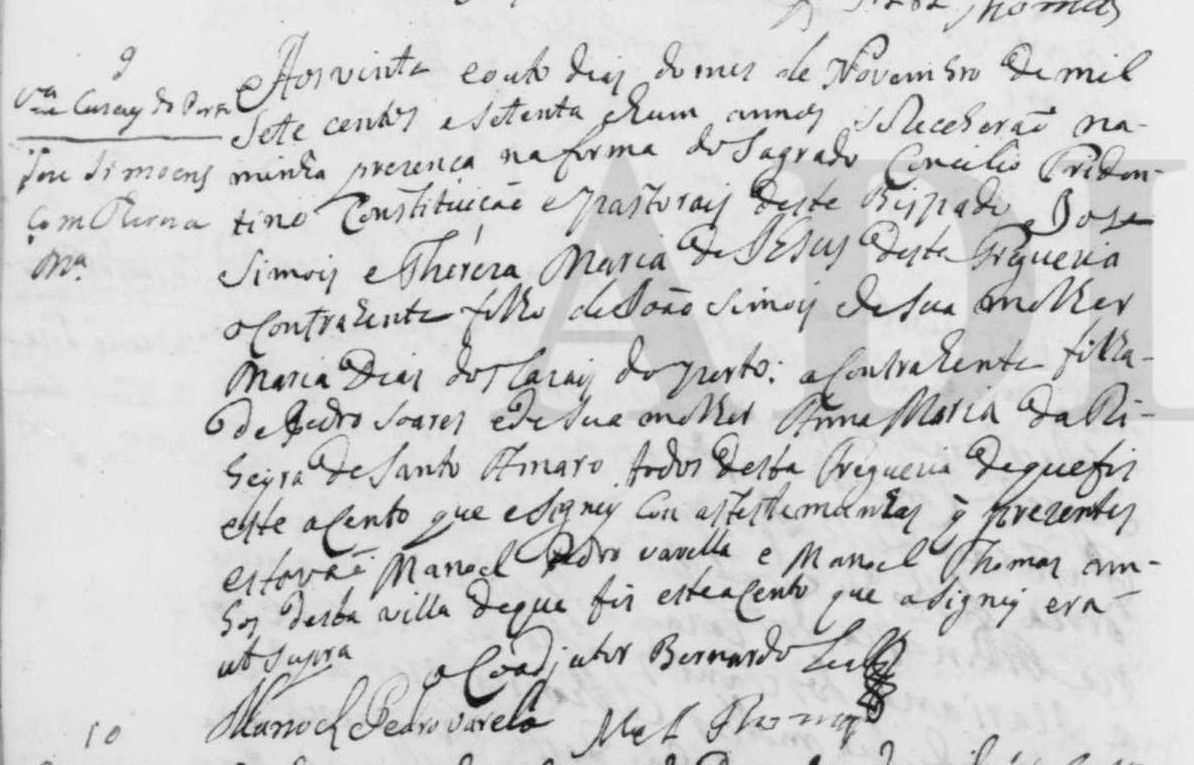 Thomas
9
Aos vinte e outo dias do mes de Novembro de mil
Casais do Porto
sete centos e setenta e hum annos se Receberaõ na
Jose Simoens
minha prezença na forma do Sagrado Concilio Triden-
com Thereza
tino Constituiçaõ e pastorais deste Bispado Joze
Ma.
Simois e Thereza Maria de Jesus desta Freguezia
o Contrahente filho de Joaõ Simois e de sua molher
Maria Dias dos Cazais do porto: a Contrahente filha
de Pedro Soares e de sua molher Anna Maria da Ri-
beyra de Santo Amaro todos desta Freguezia de que fis
este acento que asigney Con as testemunhas q̃ prezentes
estavaõ Manoel Pedro varella e Manoel Thomas am-
bos desta villa de que fis este acento que asigney era
ut supra
o Coadjutor Bernardo
Manoel Pedro Varela Mel Thomas
10
ADL